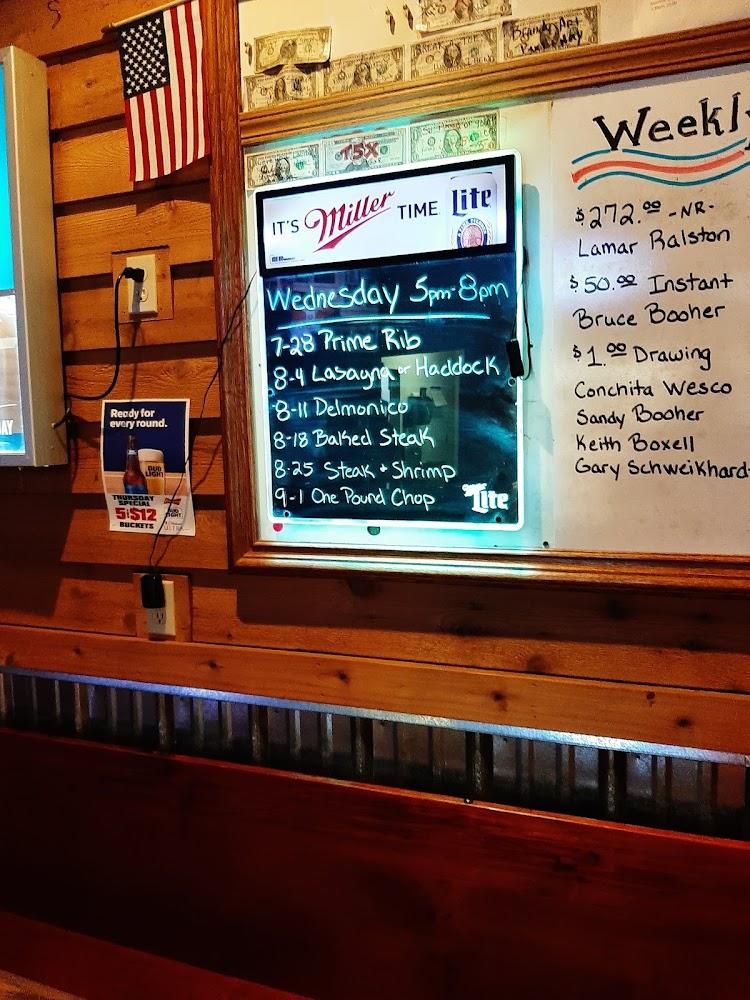 T5X
IT'S Miller TIME Lite
Wednesday 5pm-8pm
7-28 Prime Rib
8-4 Lasagna or Haddock
8-11 Delmonico
8-18 Baked Steak
8-25 Steak + Shrimp
9-1 One Pound Chop
Lite
Weekly
$272.00 -NR-
Lamar Ralston
$50.00 Instant
Bruce Booher
$1.00 Drawing
Conchita Wesco
Sandy Booher
Keith Boxell
Gary Schweikhard
Ready for
every round.
BUD
LIGHT
THURSDAY
SPECIAL
5/$12
BUCKETS
BUD
LIGHT
ULTRA